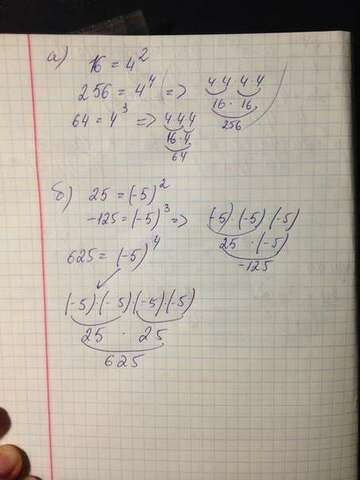 а) 16 = 4²
256 = 4⁴ => 4 4 4 4
16 · 16
256
64 = 4³ => 4 4 4
16 · 4
64
б) 25 = (-5)²
-125 = (-5)³ => (-5) · (-5) (-5)
25 · (-5)
-125
625 = (-5)⁴
(-5) (-5) · (-5) · (-5)
25 · 25
625